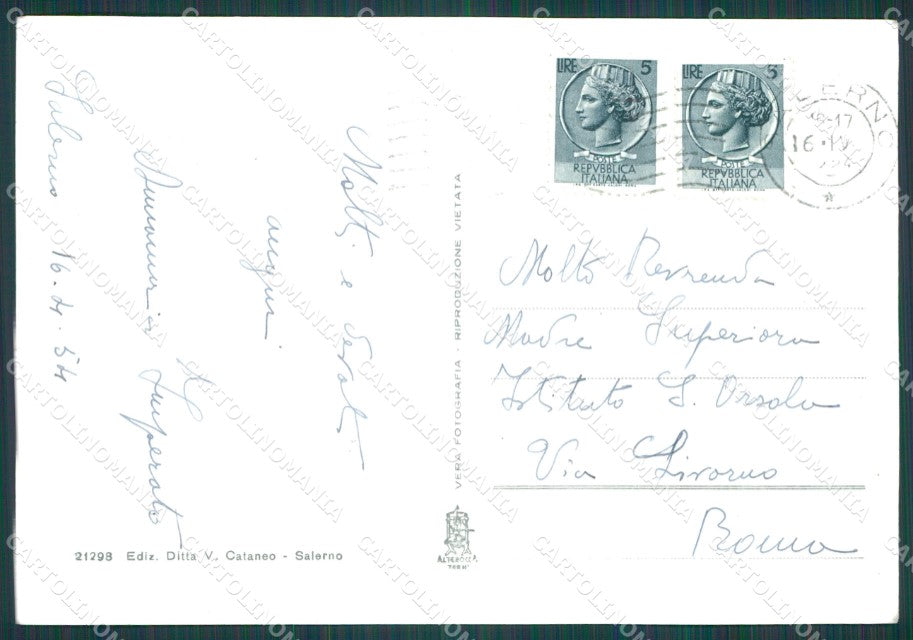 Salerno 16.4.54
Molti e devoti
auguri
Imperato
21298 Ediz. Ditta V. Cataneo - Salerno
VERA FOTOGRAFIA - RIPRODUZIONE VIETATA
ALTEROCCA
TERNI
LIRE 5
POSTE
REPVBBLICA
ITALIANA
LIRE 5
POSTE
REPVBBLICA
ITALIANA
16·IV
Molto Reverenda
Madre Superiora
Istituto S. Orsola
Via Livorno
Roma
CARTOLINOMANIA